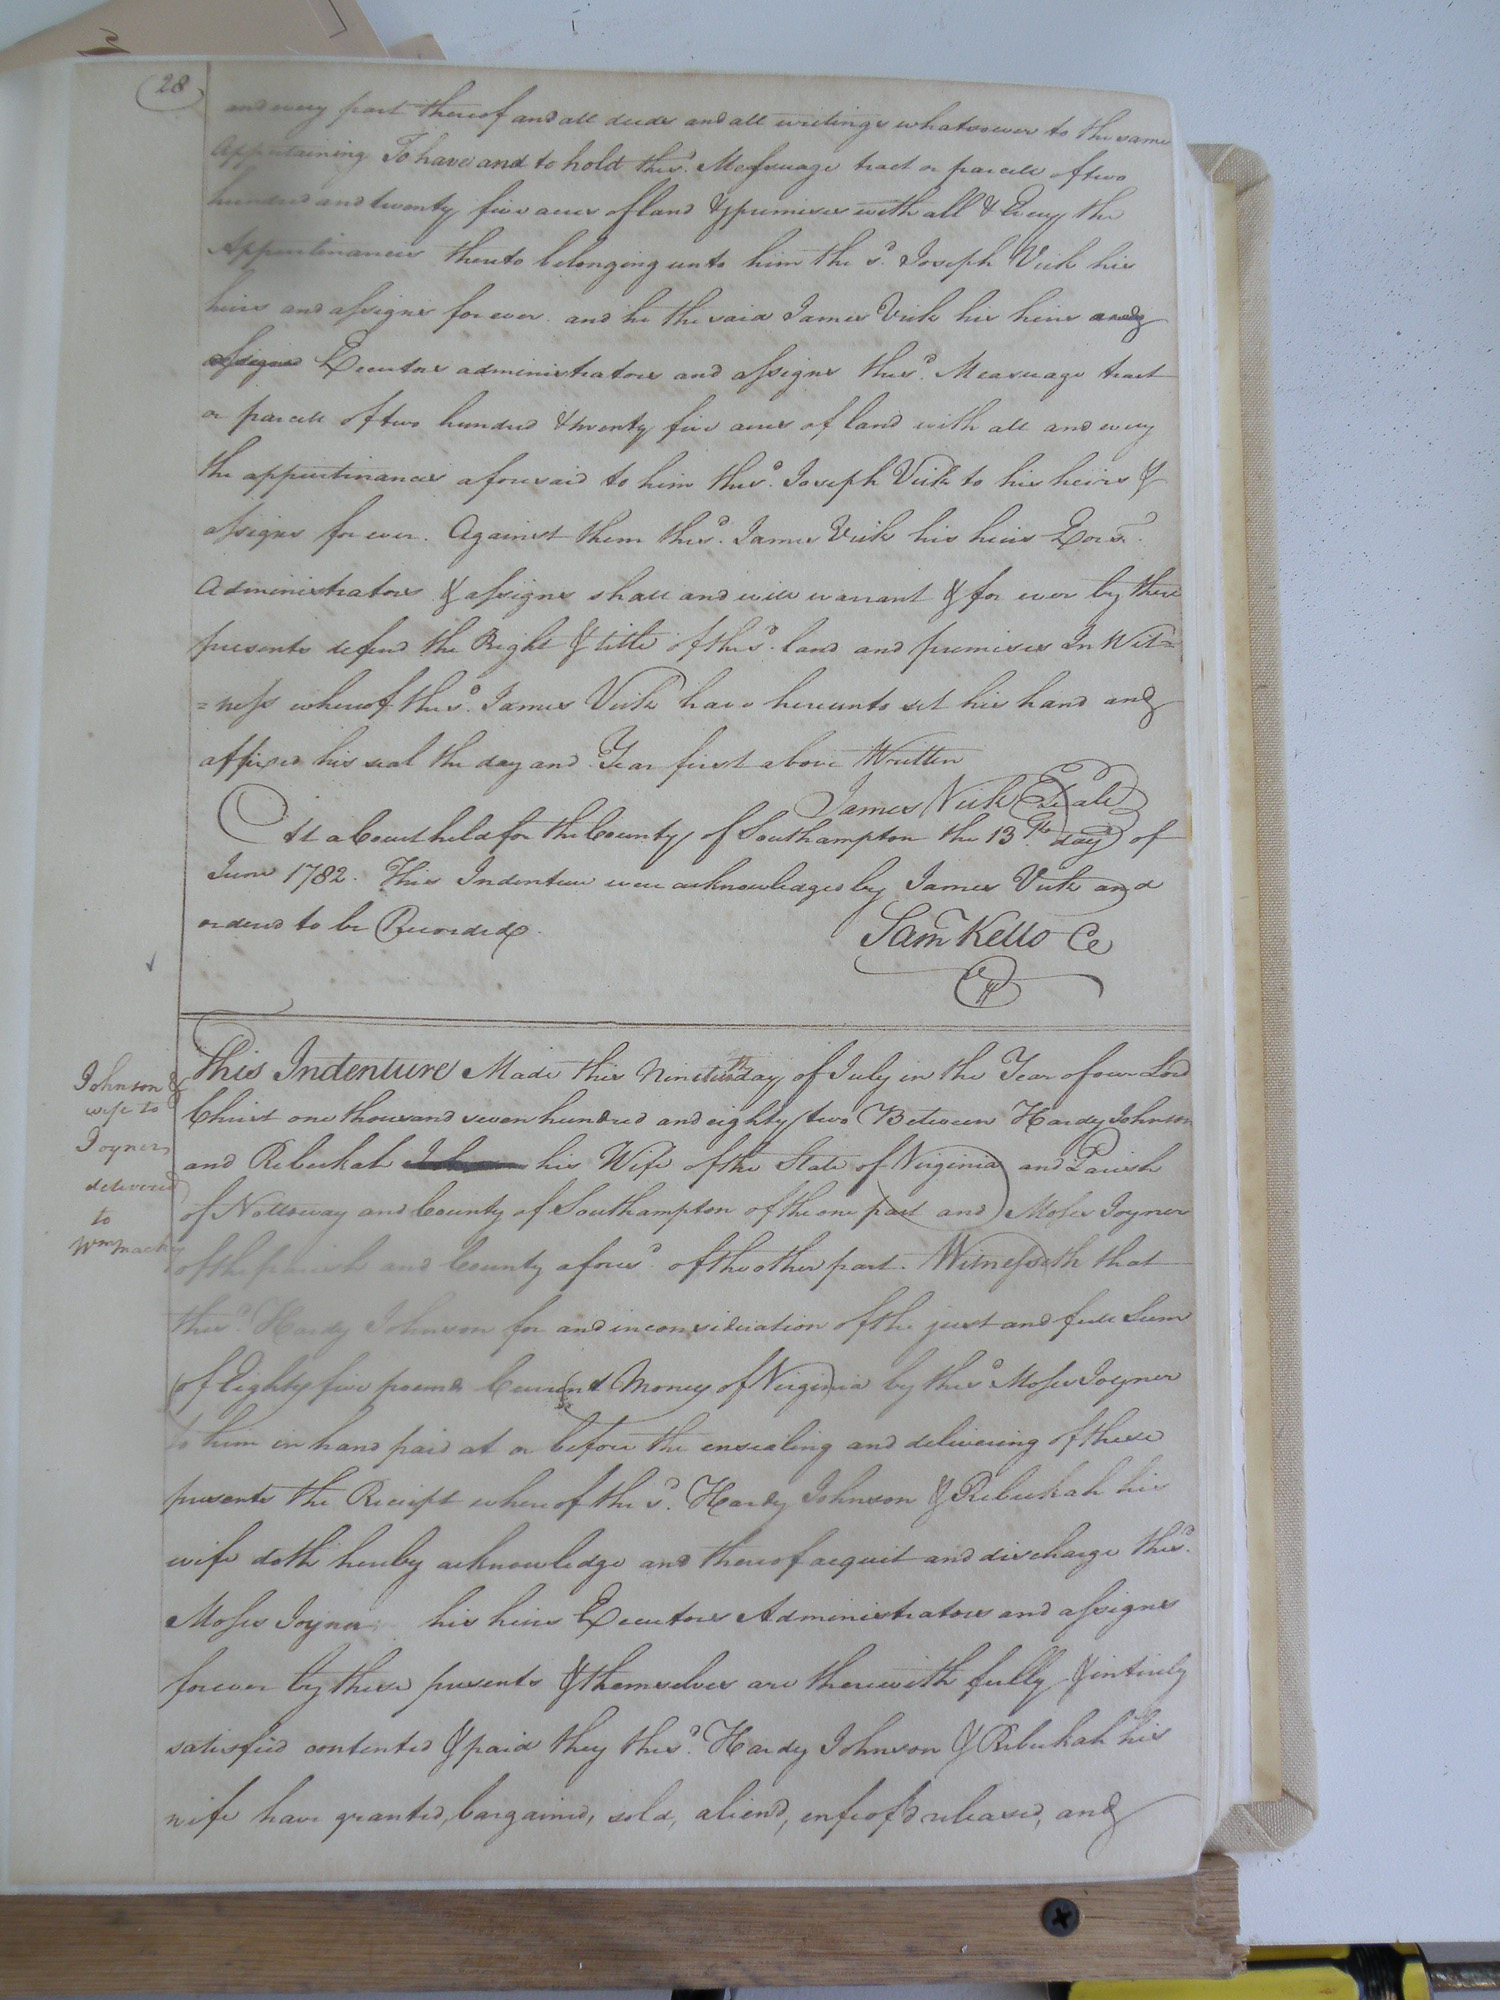 28
and every part thereof and all deeds and all writings whatsoever to the same
Appertaining To have and to hold the s.d Messuage tract or parcele of two
hundred and twenty five acres of land & premises with all & Every the
Appurtinances thereto belonging unto him the s.d Joseph Vick his
heirs and assigns for ever. and he the said James Vick his heirs and
assigns Executors administrators and assigns the s.d Measuage tract
or parcele of two hundred & twenty five acres of land with all and every
the appurtinances aforesaid to him the s.d Joseph Vick to his heirs &
assigns for ever. Against them the s.d James Vick his heirs Exors.
Administrators & assigns shall and will warrant & for ever by these
presents defend the Right & title of the s.d land and premises In Wit=
=ness whereof the s.d James Vick have hereunto set his hand and
affixed his seal the day and Year first above Written
James Vick (Seale)
At a Court held for the County of Southampton the 13.th day of
June 1782. This Indenture were acknowledged by James Vick and
ordered to be Recorded.
Sam Kello Cc
This Indenture Made this Nineteenth day of July in the Year of our Lord
Christ one thousand seven hundred and eighty two Between Hardy Johnson
and Rebeckah Johnson his Wife of the State of Virginia and Parish
of Nottoway and County of Southampton of the one part and Moses Joyner
of the parish and County afores.d of the other part. Witnesseth that
the s.d Hardy Johnson for and in consideration of the just and full Sum
of Eighty five pound Current Money of Virginia by the s.d Moses Joyner
to him in hand paid at or before the ensealing and delivering of these
presents the Receipt whereof the s.d Hardy Johnson & Rebeckah his
wife doth hereby acknowledge and thereof acquit and discharge the s.d
Moses Joyner his heirs Executors Administrators and assigns
forever by these presents & themselves are therewith fully & intirely
satisfied contented & paid they the s.d Hardy Johnson & Rebeckah his
wife have granted, bargained, sold, aliend, enfeof'd released, and
Johnson &
wife to
Joyner
delivered
to
Wm mack